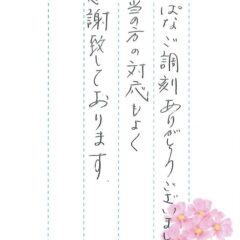 ぱなご調刻ありがとうございまし
当の方の対応もよく
感謝致しております。